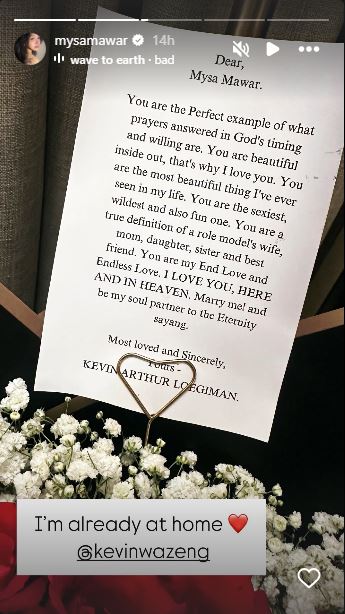 mysamawar 14h
wave to earth • bad
Dear,
Mysa Mawar.
You are the Perfect example of what
prayers answered in God's timing
and willing are. You are beautiful
inside out, that's why I love you. You
are the most beautiful thing I've ever
seen in my life. You are the sexiest,
wildest and also fun one. You are a
true definition of a role model's wife,
mom, daughter, sister and best
friend. You are my End Love and
Endless Love. I LOVE YOU, HERE
AND IN HEAVEN. Marry me! and
be my soul partner to the Eternity
sayang.
Most loved and Sincerely,
Yours -
KEVIN ARTHUR LOEGIMAN.
I'm already at home ❤️
@kevinwazeng